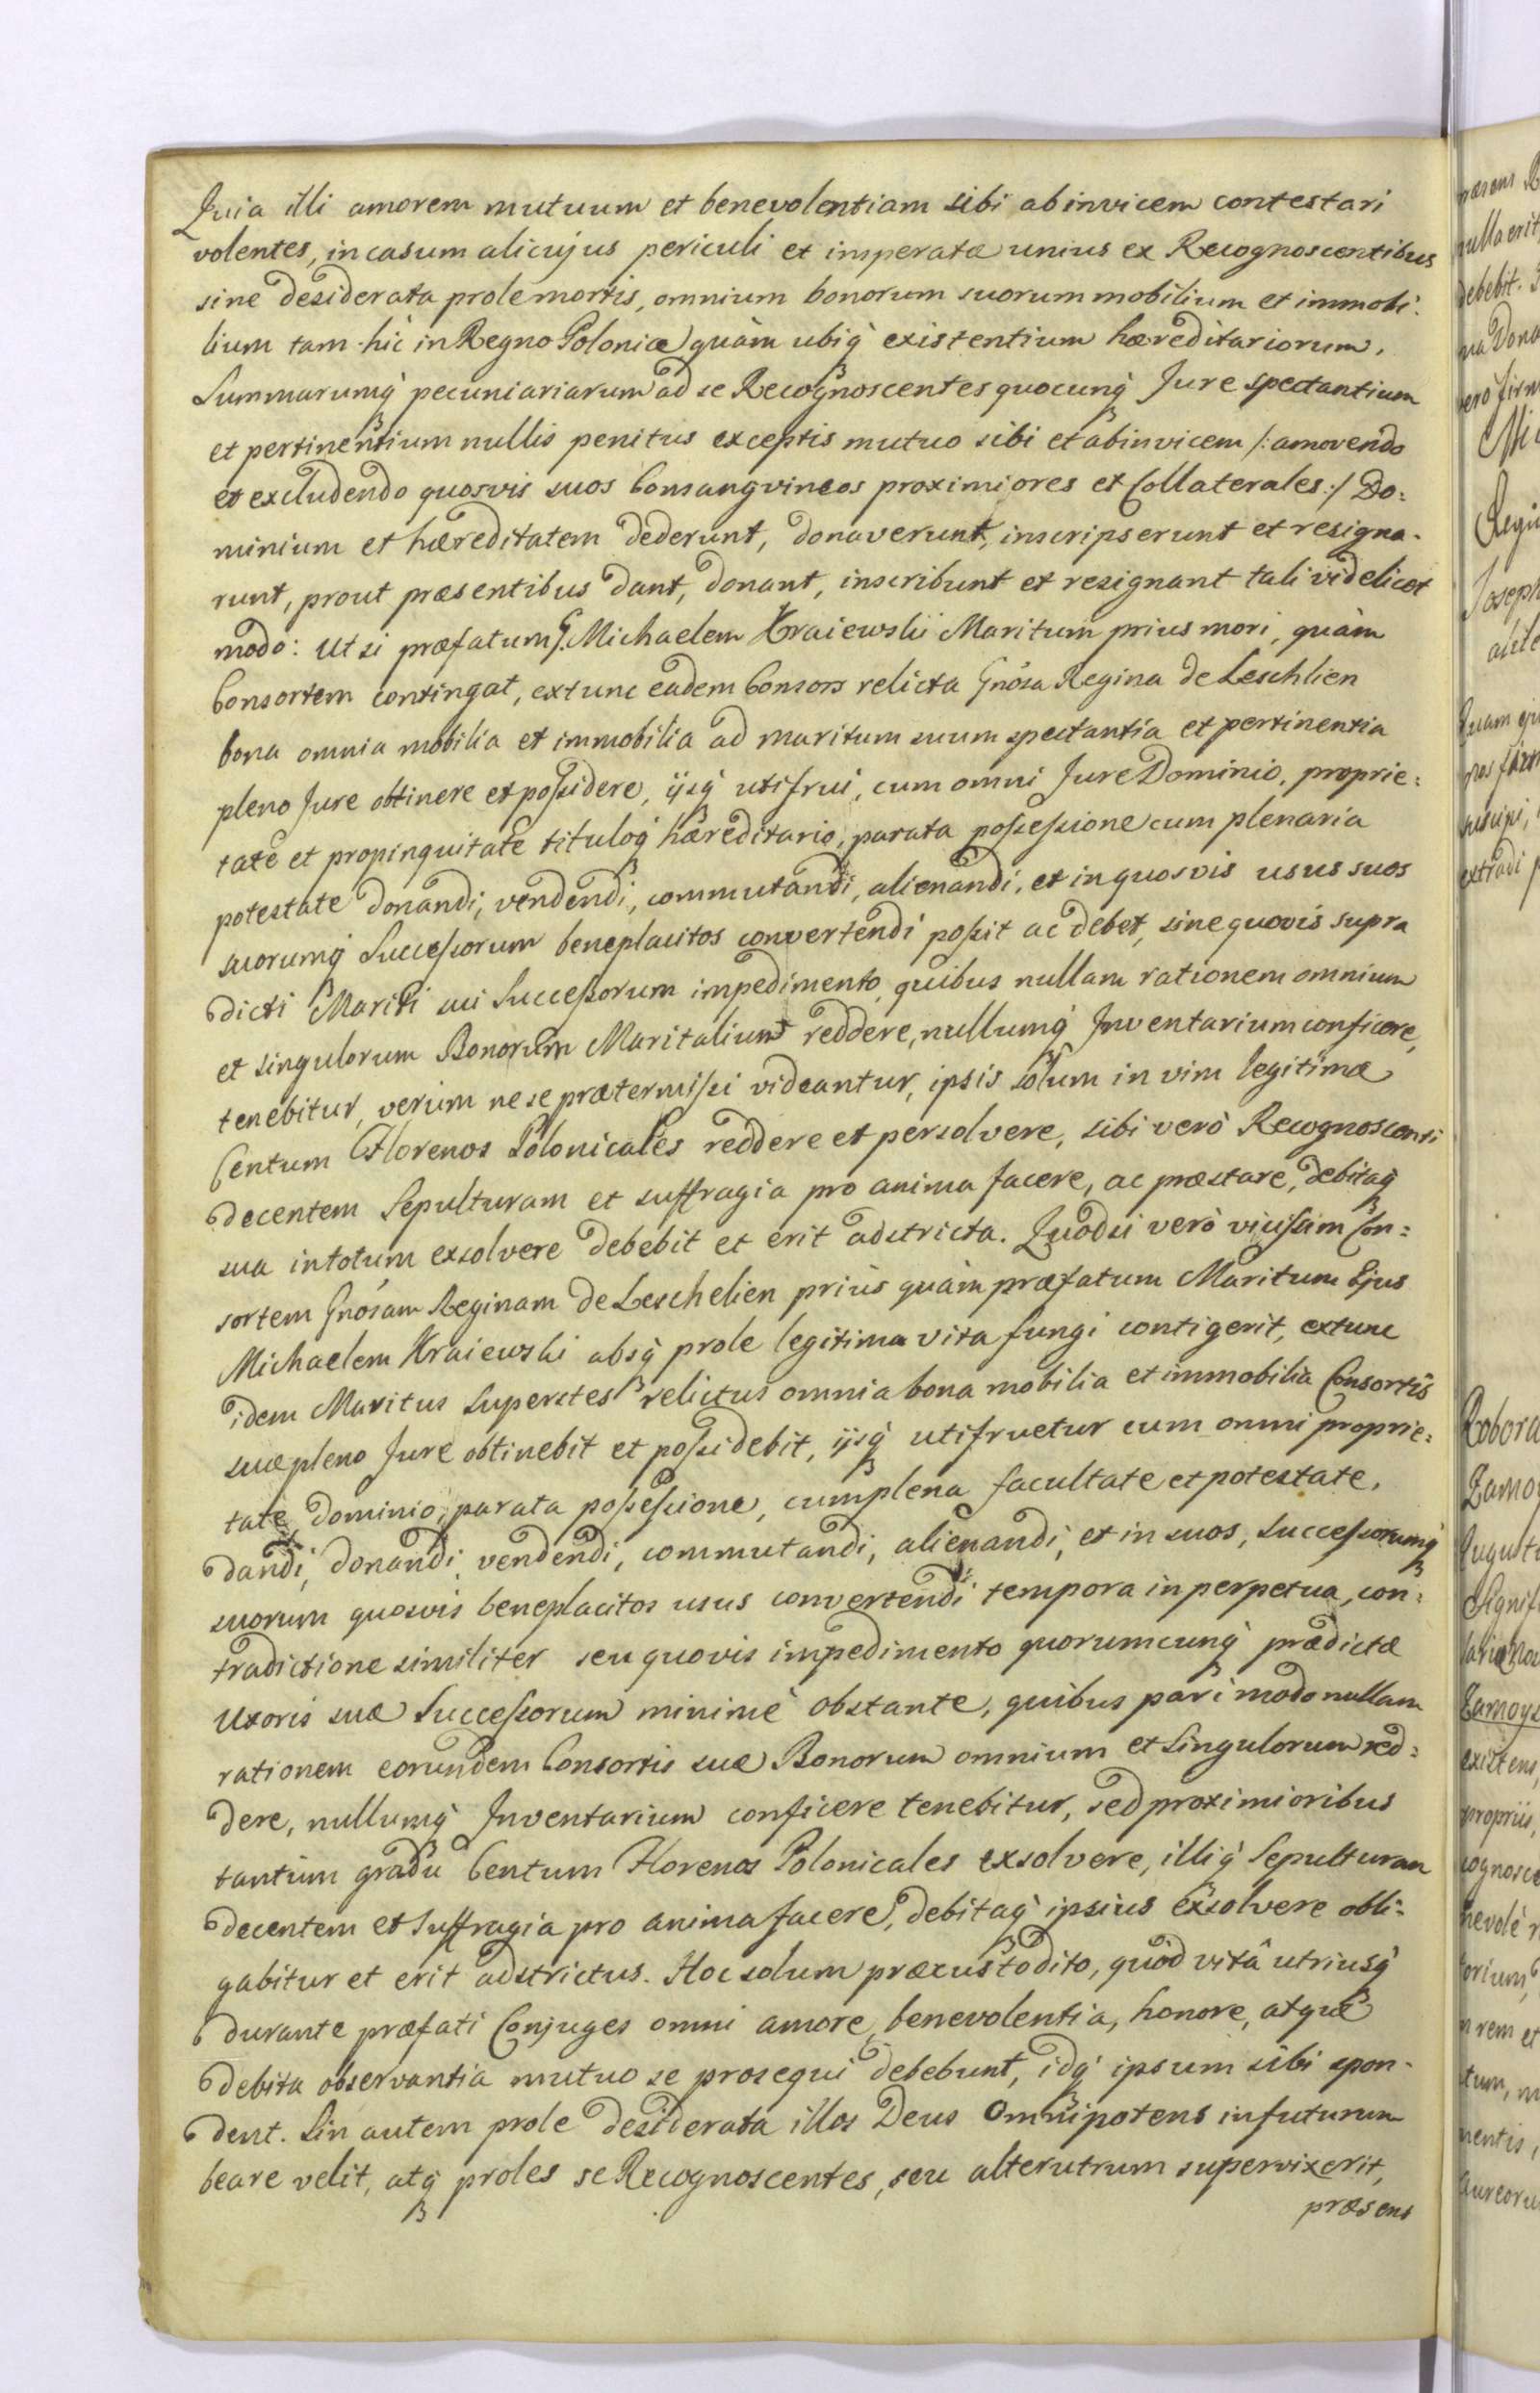 Quia illi amorem mutuum et benevolentiam sibi abinvicem contestari
volentes, in casum alicujus periculi et imperatæ unius ex Recognoscentibus
sine desiderata prole mortis, omnium bonorum suorum mobilium et immobi:
lium tam hic in Regno Poloniæ quàm ubiq̀ existentium hæreditariorum,
Summarumq̀ pecuniariarum ad se Recognoscentes quocunq̀ Jure spectantium
et pertinentium nullis penitus exceptis mutuo sibi et abinvicem /: amovendo
et excludendo quosvis suos Consangvineos proximiores et Collaterales :/ Do:
minium et hæreditatem dederunt, donaverunt, inscripserunt et resigna-
runt, prout præsentibus dant, donant, inscribunt et resignant tali videlicet
modo: Ut si præfatum G. Michaelem Kraiewski Maritum prius mori, quàm
Consortem contingat, extunc eadem Consors relicta Gnosa Regina de Leschlien
bona omnia mobilia et immobilia ad maritum suum spectantia et pertinentia
pleno Jure obtinere et possidere, ijsq̀ utifrui, cum omni Jure Dominio, proprie:
tate et propinquitate tituloq̀ hæreditario, parata possessione cum plenaria
potestate donandi, vendendi, commutandi, alienandi, et in quosvis usus suos
suorumq̀ Successorum beneplacitos convertendi possit ac debet, sine quovis supra
dicti Mariti sui Successorum impedimento, quibus nullam rationem omnium
et singulorum Bonorum Maritalium reddere, nullumq̀ Inventarium conficere,
tenebitur, verùm ne se prætermissi videantur, ipsis solum in vim legitimæ
Centum Florenos Polonicales reddere et persolvere, sibi verò Recognoscenti
decentem Sepulturam et suffragia pro anima facere, ac præstare, debitaq̀
sua in totum exsolvere debebit et erit adstricta. Quodsi verò vicissim Con:
sortem Gnosam Reginam de Leschelien priùs quàm præfatum Maritum Ejus
Michaelem Kraiewski absq̀ prole legitima vita fungi contigerit, extunc
idem Maritus Superstes relictus omnia bona mobilia et immobilia Consortis
suæ pleno Jure obtinebit et possidebit, ijsq̀ utifruetur cum omni proprie:
tate, Dominio, parata possessione, cum plena facultate et potestate,
dandi, donandi, vendendi, commutandi, alienandi, et in suos, Successorumq̀
suorum quosvis beneplacitos usus convertendi tempora in perpetua, con:
tradictione similiter seu quovis impedimento quorumcunq̀ prædictæ
Uxoris suæ Successorum minimè obstante, quibus pari modo nullam
rationem eorundem Consortis suæ Bonorum omnium et Singulorum red:
dere, nullumq̀ Inventarium conficere tenebitur, sed proximioribus
tantùm gradu Centum Florenos Polonicales exsolvere, illiq̀ Sepulturam
decentem et Suffragia pro anima facere, debitaq̀ ipsius exsolvere obli-
gabitur et erit adstrictus. Hoc solum præcustodito, quòd vitâ utriusq̀
durante præfati Conjuges omni amore, benevolentia, honore, atque
debita observantia mutuo se prosequi debebunt, idq̀ ipsum sibi spon-
dent. Sin autem prole desiderata illos Deus Omnipotens in futurum
beare velit, atq̀ proles se Recognoscentes, seu alterutrum supervixerit,
præsens